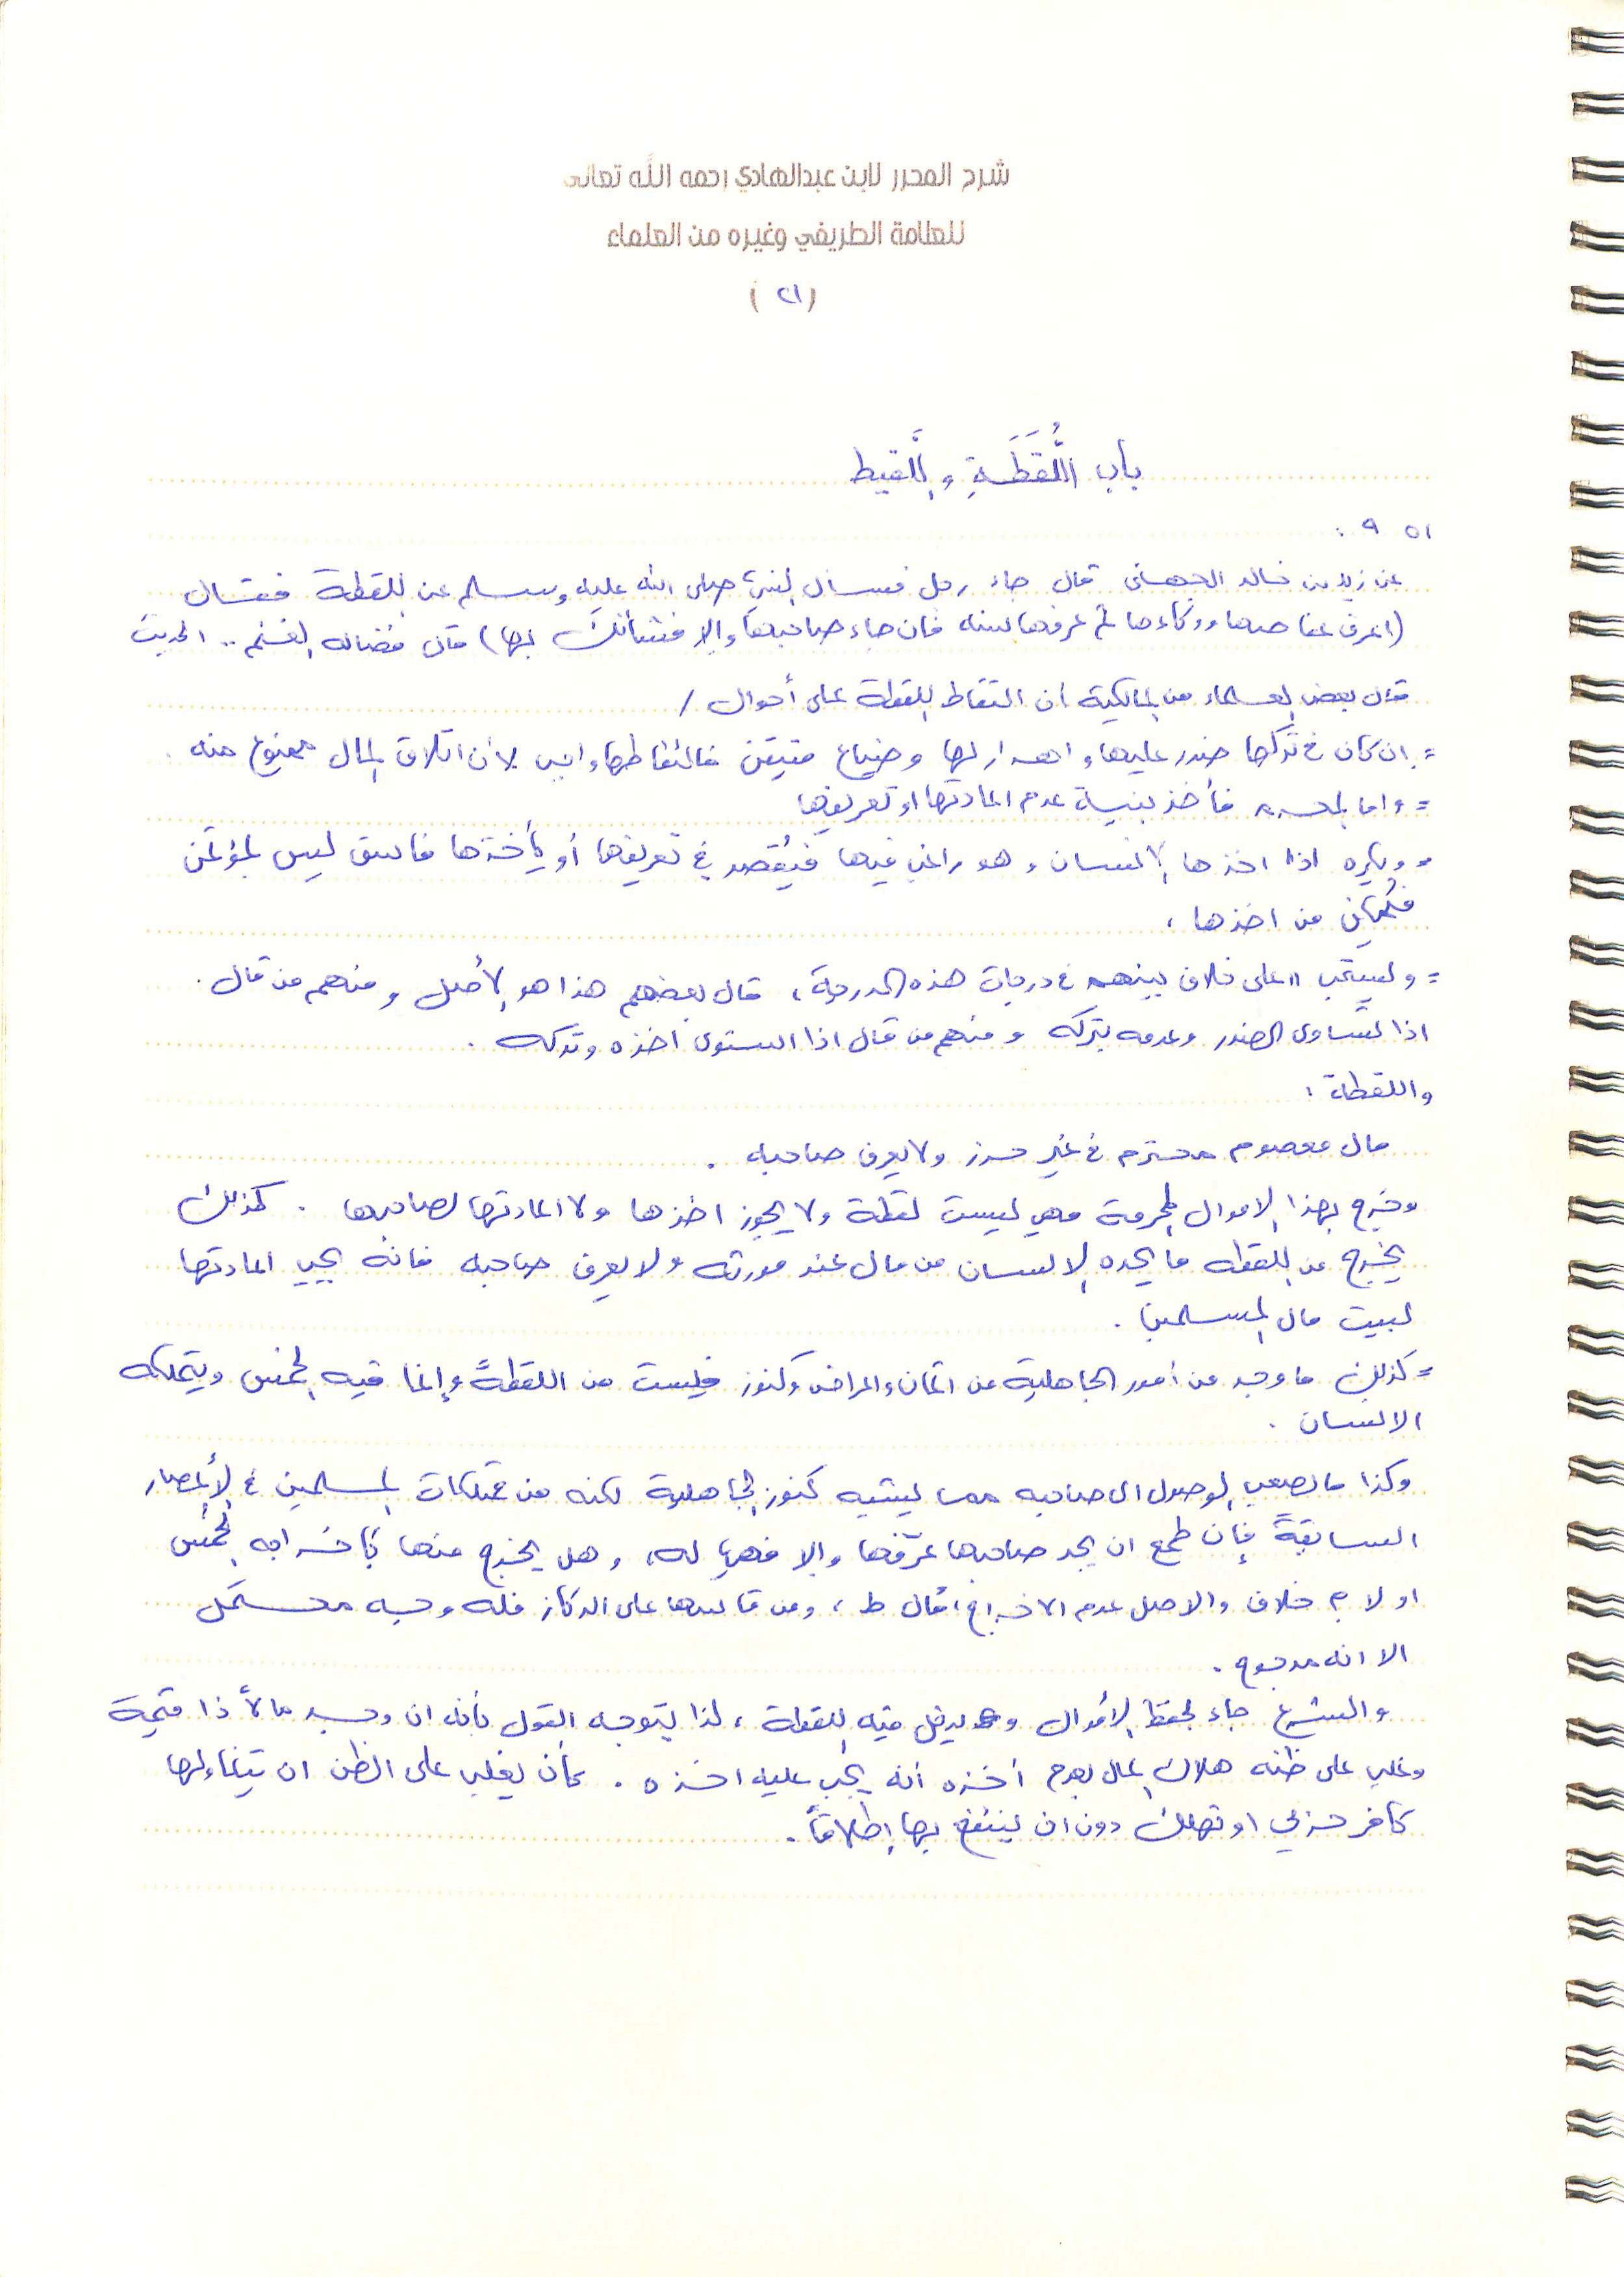 شرح المحرر لابن عبدالهادي رحمه الله تعالى
للعلامة الطريفي وغيره من العلماء
(٢١)
باب اللُّقَطَةِ واللَّقيط
٩٥١ :
عن زيد بن خالد الجهني قال جاء رجل فسأل النبي صلى الله عليه وسلم عن اللقطة فقال
(اعرف عفاصها ووكاءها ثم عرفها سنه فان جاء صاحبها وإلا فشأنك بها) قال فضاله الغنم .. الحديث
قال بعض العلماء من المالكية أن التقاط اللقطة على أحوال /
= ان كان في تركها ضرر عليها واهدار لها وضياع متيقن فالتقاطها واجب لأن اتلاف المال ممنوع منه .
= واما المحرم فأخذ بنية عدم اعادتها او تعريفها
= ويكره اذا اخذها الانسان وهو راغب فيها فيُقصر في تعريفها أو يأخذها فاسق ليس بمؤتمن
من اخذها ،
= ويستحب " على خلاف بينهم في درجات هذه الدرجة ، قال بعضهم هذا هو الأصل ومنهم من قال .
اذا تساوى الضرر وعدمه بتركه ومنهم من قال اذا استوى اخذه وتركه .
واللقطة :
مال معصوم محترم في غير حرز ولا يعرف صاحبه .
وخرج بهذا الاموال المحرمة فهي ليست لقطة ولا يجوز اخذها ولا اعادتها لصاحبها . كذلك
يخرج من اللقطه ما يجده الانسان من مال عند مورثه ولا يعرف صاحبه فانه يجب اعادتها
لبيت مال المسلمين .
= كذلك ما وجد من أمور الجاهلية من اثمان واعراض وكنوز فليست من اللقطة وإنما فيه الخمس ويتملكه
الانسان .
وكذا ما يصعب الوصول الى صاحبه مما يشبه كنوز الجاهلية لكنه من ممتلكات المسلمين في الأعصار
السابقة فإن طمع ان يجد صاحبها عرّفها والا فهي له ، وهل يخرج منها كإخراجه الخمس
او لا ؟ خلاف والاصل عدم الاخراج ، قال ط ، ومن قاسها على الركاز فله وجه محتمل
الا انه مرجوح .
والشرع جاء لحفظ الأموال ويدخل فيه اللقطة ، لذا يتوجه القول بأنه ان وجد مالاً ذا قيمة
وغلب على ظنه هلاك المال بعدم أخذه أنه يجب عليه اخذه . كأن يغلب على الظن ان يتناولها
كافر حربي او تهلك دون ان ينتفع بها إطلاقاً .